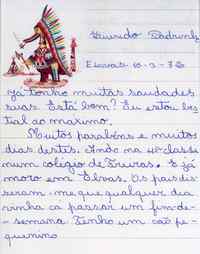 Querido Padrinho
Elvas 10-3-78
Já tenho muitas saudades
suas. Está bom? Eu estou bes-
tial ao máximo.
Muitos parabéns e muitos
dias destes. Ando na 4ª classe
num colégio de Freiras. E já
moro em Elvas. Os pais dis-
seram-me que qualquer dia
vinha cá passar um fim-de-
-semana. Tenho um cão pe-
quenino